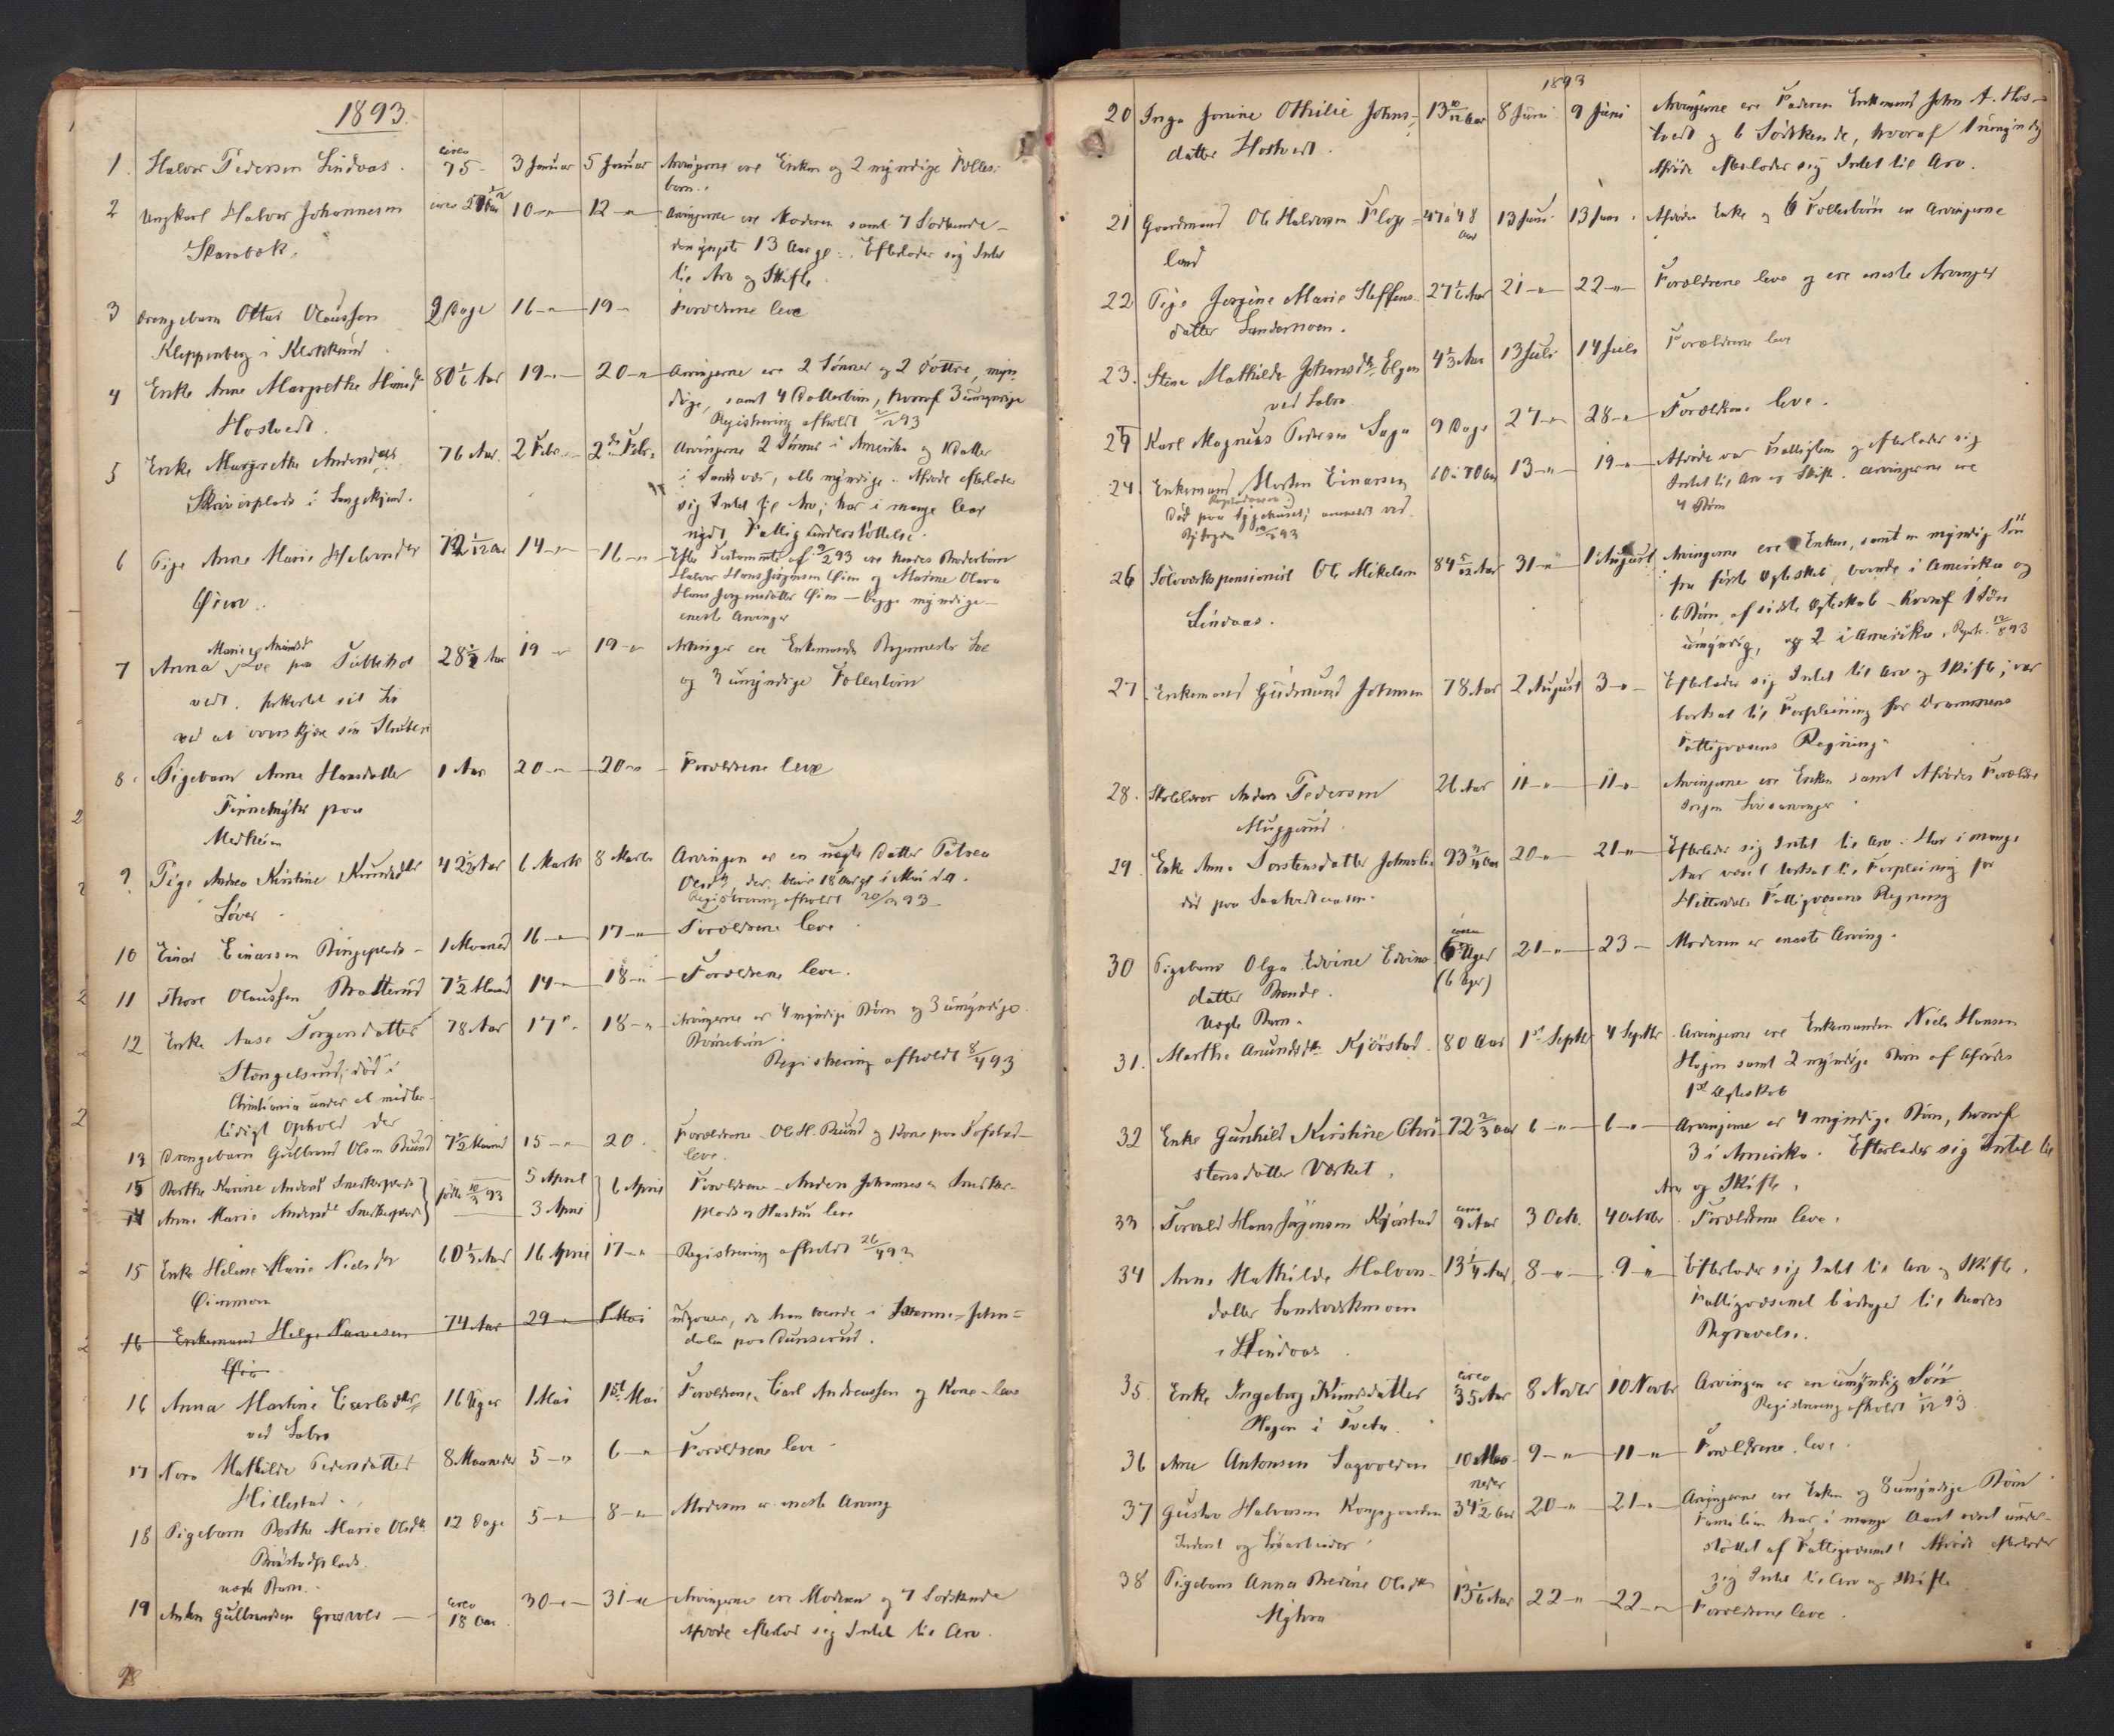 1893.
1. Halvor Pedersen Lindaas. circa 75 - 3 Januar 5 Januar Arvingerne ere Enken og 2 myndige Fælles-
børn.
2 Ungkarl Halvor Johannesen circa 10 -"- 12 -"- Arvingerne ere Moderen samt 7 Sødskende -
Skarabæk. den yngste 13 Aar gl. Efterlader sig Intet
til Arv og Skifte
3 Drengebarn Ottar Olaussen 2 Dage 16 -"- 19 - Forældrene leve
Kleppenberg i
4 Enke Anne Margrethe Hansdtr 80 1/6 Aar 19 -"- 20 -" Arvingerne ere 2 Sønner og 2 Døttre, myn-
Hostvedt. dige, samt 4 Datterbørn, hvoraf 3 umyndige
Registrering afholdt 93
5 Enke Margrethe Andersd. 76 Aar. 2 Febr. 2 Febr. Arvingerne 2 Sønner i Amerika og 1 Datter
Skriverplads i alle myndige. Afdøde efterlader
sig Intet til Arv; har i mange Aar
nydt Fattigunderstøttelse.
6 Pige Anne Marie Halvorsdtr 14 -"- 16 -"- Efter Testamente af 93 ere hendes Broderbørn
Øien. Halvor Hans Jørgensen Øien og Maren Olava
Hans Jørgensdatter Øien - begge myndige -
eneste Arvinger
7 Anna Marie Loe paa 28 1/2 Aar 19 -"- 19 -" Arvinger ere Enkemanden Loe
vedt. forkortet sit Liv og 3 umyndige Fællesbørn
ved at overskjære sin Strube
8. Pigebarn Anne Hansdatter 1 Aar 20 -"- 20 -"- Forældrene leve
paa
Medheien
9. Pige Andrea Kirstine 42 1/2 Aar 6 Marts 8 Marts Arvingen er en uægte Datter Petrea
Løver. der bliver 18 Aar gl i Mai d.A.
Registrering afholdt 20/3 93
10 Einar Einarsen Bingeplads - 1 Maaned 16 -"- 17 -"- Forældrene leve
11 Thore Olaussen Bratterud 7 1/2 Maaned 14 -"- 18 -" Forældrene leve.
12 Enke Aase Torgersdatter 78 Aar 17 ". 18 -" Arvingerne er 4 myndige Børn og 3 umyndige
Stengelsrud, død i Børnebørn.
Christiania under et midler- Registrering afholdt 8/4 93
tidigt Ophold der
13 Drengebarn Gulbrand Olsen Ruud 7 1/2 Maaned 15 -"- 20. Forældrene - Ole H. Ruud og Kone paa
leve.
15 Berthe Karine Andersd. Snekkerplads født 10/3 93 5 April 6 April Forældrene - Anders Johannesen Snekker-
14 Anne Marie Andersdtr Snekkerplads 3 April plads og Hustru leve
15 Enke Helene Marie Nielsdtr 60 1/3 Aar 16 April 17 -" Registrering afholdt 26/4 93
Øinmoen
16 Enkemand Helge Narvesen 74 Aar 29 -"- 1 Mai udgaaer, da han boende i
Øie dalen paa Dunserud.
16 Anna Martine Carlsdtr 16 Uger 1 Mai 1st Mai Forældrene, Carl Andreassen og Kone - leve
ved Labro
17 Nora Mathilde Pedersdatter 8 Maaneder 5 -" 6 -" Forældrene leve -
Hillestad.
18 Pigebarn Berthe Marie Olsdtr 12 Dage 5 -"- 8 -"- Moderen er eneste Arving
uægte Barn.
19 Anton Gulbrandsen Grosvold - circa 18 Aar. 30 -"- 31 -" Arvingerne ere Moderen og 7 Sødskende
Afdøde efterlod sig Intet til Arv.
98
1893
20 Inga Jonine Othilie Johns- 13 10/12 Aar 8 Juni 9 Juni Arvingerne ere Faderen Enkemand John A. Hos-
datter Hostvedt. tvedt og 6 Sødskende, hvoraf 1 umyndig
Afdøde efterlader sig Intet til Arv.
21 Gaardmand Ole Halvorsen Flage- 47 à 48 Aar 13 Juni 13 Juni. Afdødes Enke og 6 Fællesbørn er Arvingerne
land
22 Pige Jorgine Marie Steffens- 27 1/6 Aar 21 -"- 22 -"- Forældrene leve og ere eneste Arvinger
datter Sandsmoen.
23. Stina Mathilde Johansdtr Elgen 4 1/3 Aar 13 Juli 14 Juli Forældrene leve
ved Labro
24 Karl Magnus Pedersen Saga 9 Dage 27 -"- 28 -" Forældrene leve.
24. Enkemand Morten Einarsen 60 à 70 Aar 13 -"- 19 -" Afdøde var Fattiglem og efterlader sig
Død paa Sygehuset; anmeldt ved Intet til Arv og Skifte. Arvingerne ere
93 4 Børn
26 Sølvverkspensionist Ole Mikelsen 84 5/12 Aar 31 -" 1 August Arvingerne ere Enken, samt en myndig Søn
Lindaas. fra første Ægteskab, boende i Amerika og
6 Børn af sidste Ægteskab - hvoraf 1 Søn
umyndig, og 2 i Amerika. Regist. 12/8 93
27 Enkemand Gudmund Johnsen 78 Aar 2 August 3 -"- Efterlader sig Intet til Arv og Skifte; var
bortsat til Forpleining for Drammens
Fattigvæsens Regning.
28. Skolelærer Anders Pedersen 26 Aar 11 -"- 11 -"- Arvingerne ere Enken samt Afdødes Forældre
Muggerud. Ingen Livsarvinger.
29. Enke Anne Torstensdatter 93 Aar 20 -"- 21 -" Efterlader sig Intet til Arv. Har i mange
død paa Aar været bortsat til Forpleining for
Hitterdals Fattigvæsens Regning
30 Pigebarn Olga Edvine Edvins- circa 6 Uger 21 -"- 23 - Moderen er eneste Arving.
datter Brende. (6 Uger)
Uægte Barn.
31. Marthe Amundsdtr Kjørstad. 80 Aar 1st Septbr 4 Septbr Arvingerne ere Enkemanden Niels Hansen
Hagen samt 2 myndige Børn af Afdødes
1st Ægteskab
32 Enke Gunhild Kirstine Chri- 72 2/3 Aar 6 -"- 6 -"- Arvingerne er 4 myndige Børn, hvoraf
stensdatter Værket. 3 i Amerika. Efterlader sig Intet til
Arv og Skifte.
33 Torvald Hans Jørgensen Kjørstad circa 9 Aar 3 Octb. 4 Octobr. Forældrene leve.
34 Anne Mathilde Halvors- 13 1/4 Aar 8 -"- 9 -" Efterlader sig Intet til Arv og Skifte.
datter Fattigvæsenet bidraget til hendes
i Skindaas Begravelse.
35. Enke Ingeborg Knudsdatter circa 35 Aar 8 Novbr 10 Novbr Arvingen er en umyndig Søn
Hagen i Tveta. Registrering afholdt 93
36 Arne Antonsen Sagvolden 10 Maa- 9 -" 11 -" Forældrene leve.
neder
37 Gustav Halvorsen Kongsgaarden 34 1/2 Aar 20 -" 21 -"- Arvingerne ere Enken og 8 umyndige Børn
Inderst og Familien har i mange Aar været under-
støttet af Fattigvæsenet! Afdøde efterlader
sig Intet til Arv og Skifte
38 Pigebarn Anna Bredine Olsdtr 13 1/6 Aar 22 -" 22 -"- Forældrene leve.
Myhra